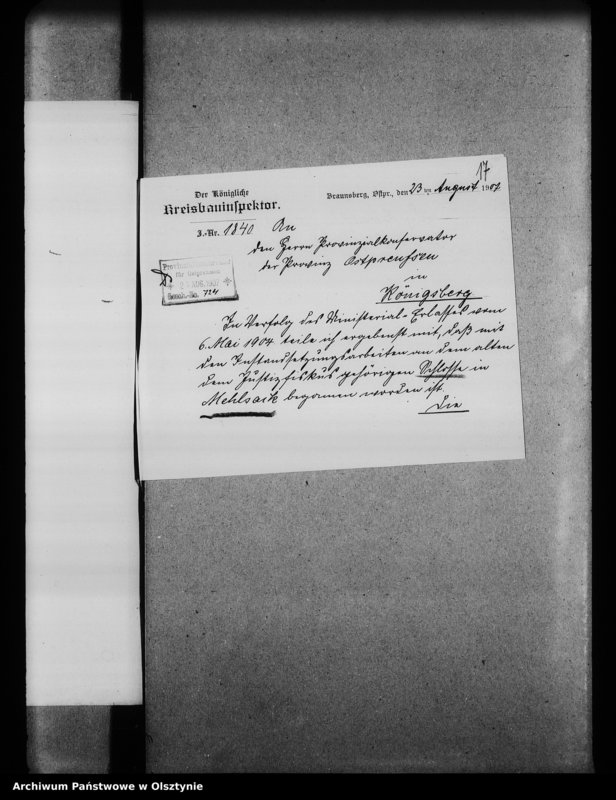 17
Der Königliche
Kreisbauinspektor.
J.-Nr. 1840
Braunsberg, Ostpr., den 23 ten August 1907
An
den Herrn Provinzialkonservator
der Provinz Ostpreußen
in
Königsberg
Provinzialkonservator
für Ostpreussen
25 AUG. 1907
Gesch.-No. 724
In Verfolg des Ministerial-Erlasses vom
6. Mai 1904 teile ich ergebenst mit, daß mit
den Instandsetzungsarbeiten an dem alten
dem Justizfiskus gehörigen Schlosse in
Mehlsack begonnen worden ist.
Die
Archiwum Państwowe w Olsztynie